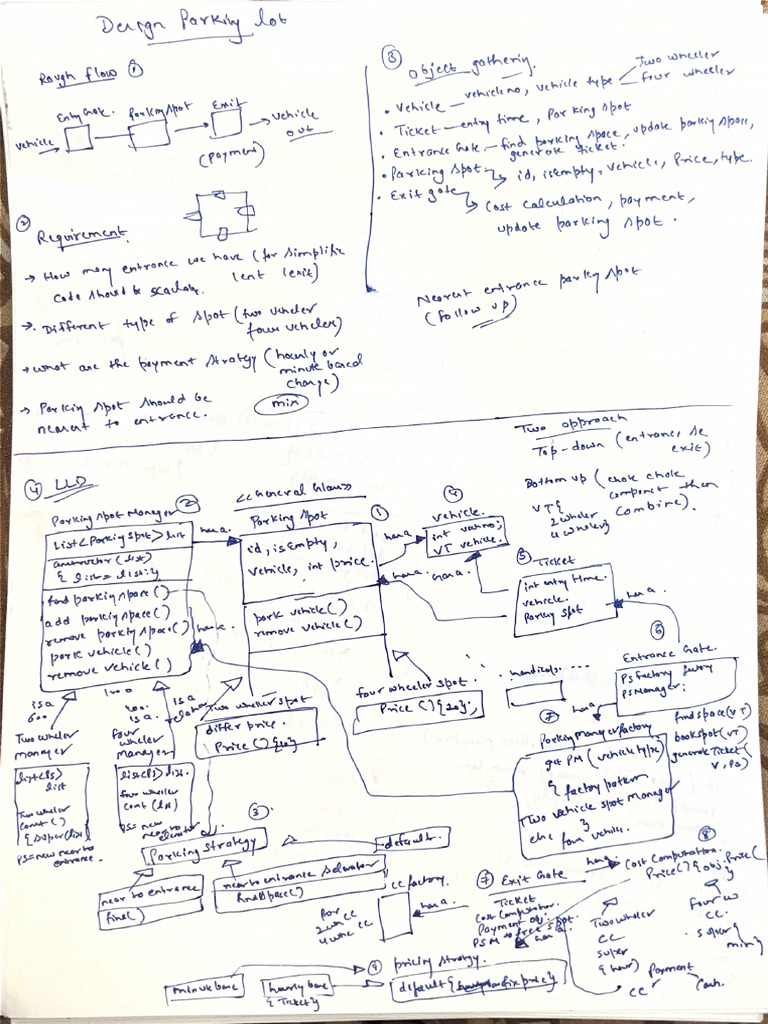 Design Parking lot
Rough flow ①
Entry Gate. Parking Spot Exit
vehicle → vehicle out
(payment)
② Requirement
→ How many entrance we have (for simplific
code should be scalable. 1ent 1exit)
→ Different type of spot (two wheeler
four wheeler)
→ what are the payment strategy (hourly or
minute based
charge)
mix
→ Parking spot should be
nearest to entrance.
③ Object gathering.
• Vehicle — vehicle no, vehicle type Two wheeler
four wheeler
• Ticket — entry time, Parking Spot
• Entrance Gate — find parking space, update parking space,
generate ticket.
• Parking Spot id, isEmpty, vehicle, Price, type.
• Exit gate Cost calculation, payment,
update parking spot.
Nearest entrance parking spot
(follow up)
Two approach
Top-down (entrance se
exit)
Bottom up (chote chote
component then
combine).
VT{
2 wheeler
4 wheeler}
④ LLD
Parking Spot Manager ②
List<Parking Spot> list
{ list = list;}
find parking space()
add parking space()
remove parking space()
park vehicle()
remove vehicle()
has a.
<<General Class>>
Parking Spot ①
id, isEmpty,
vehicle, int price.
park vehicle()
remove vehicle()
has a.
has a.
has a.
④ vehicle.
int
VT vehicle.
⑤ Ticket
int entry time.
vehicle.
Parking Spot
has a
⑥
Entrance Gate.
PSfactory
PSManager;
find space(VT)
bookspot(VT)
generateTicket(
V, PS)
has a
⑦
Parking manager factory
get PM (vehicle type)
{ factory pattern
Two vehicle spot manager
else }
four vehicle.
Two wheeler spot
differ price.
Price(){10}
four wheeler spot
Price(){20};
handicap. ...
is a
600
Two wheeler
manager
list<PS>
list
Two wheeler
const()
{super(list)
PS=new near to
entrance.
100
400.
is a.
four
wheeler
manager
list<PS>
list.
four wheeler
const(list)
PS=new
near to
elevator
is a
③
Parking strategy
near to entrance
find()
near to entrance & elevator
find space()
default.
CC factory.
for
2wh CC
4whe CC
has a
⑦ Exit Gate
Ticket
Cost Computation
Payment obj.
PSM to free spot.
has a
has a
⑧
Cost Computation.
Price(){obj.Price(
Two wheeler
CC
super
{hour}
four w
CC.
super{
min}
Payment
CC
Cash.
⑨ pricing strategy.
minute base
hourly base
{Ticket}
default{ fix price}